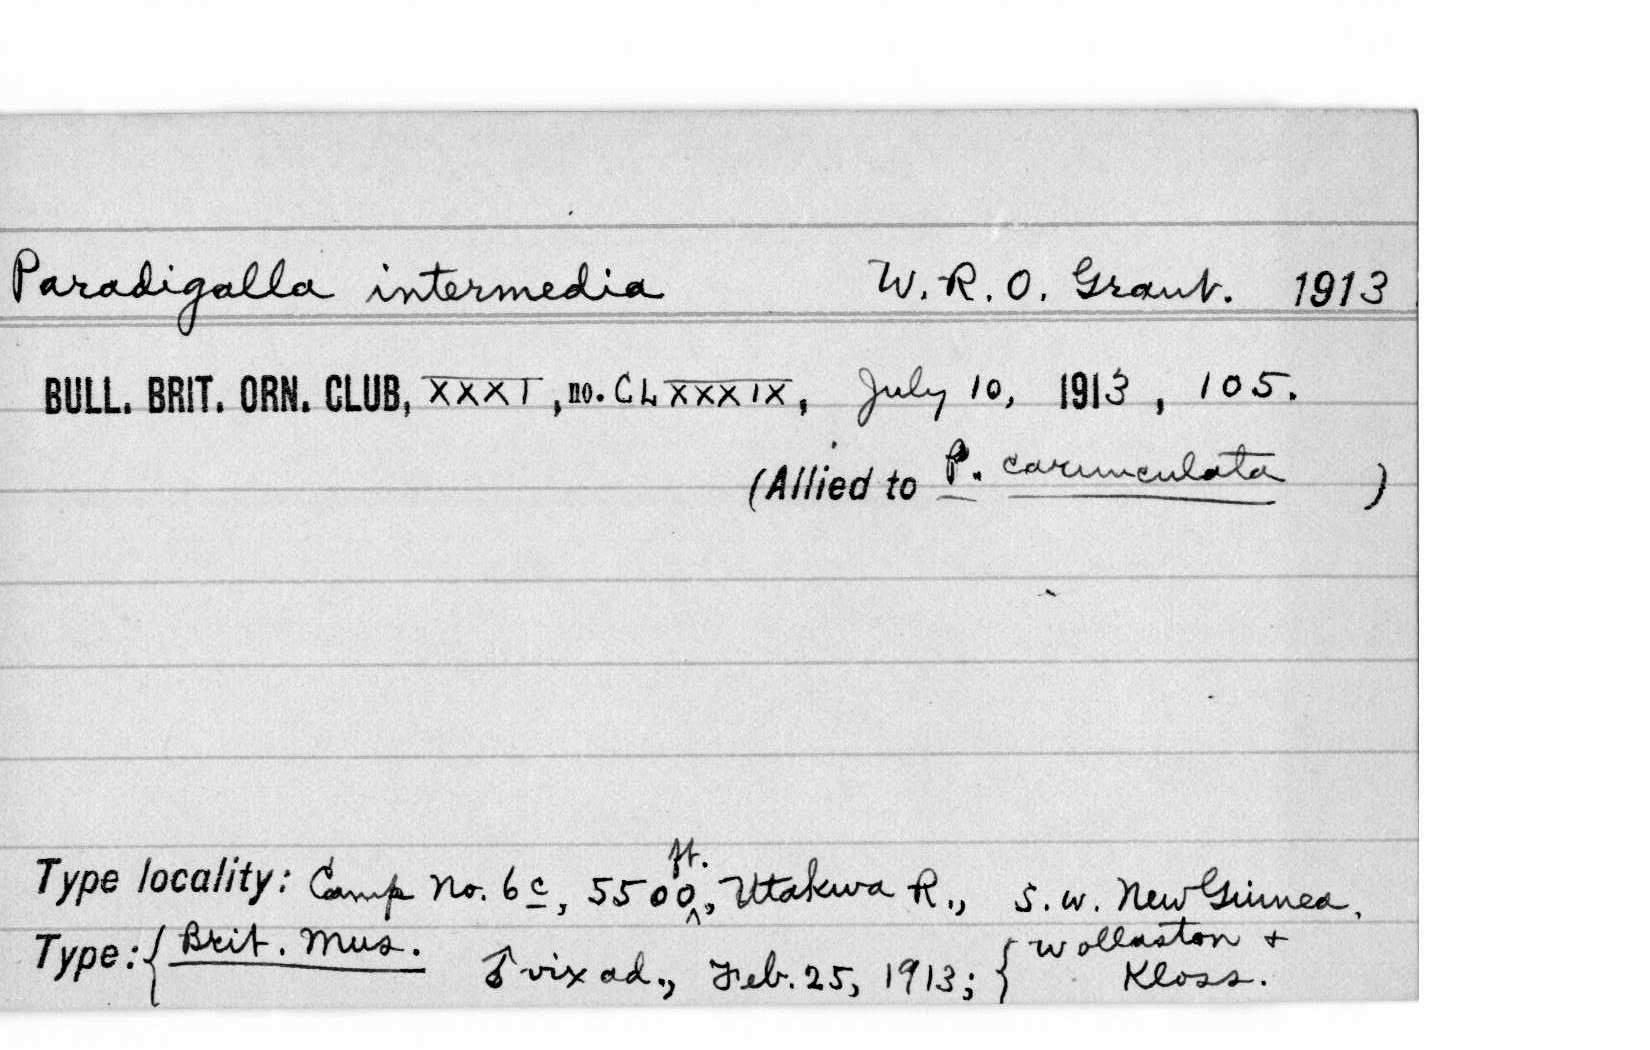 Paradigalla intermedia W. R. O. Grant. 1913
BULL. BRIT. ORN. CLUB, XXXI, no. CLXXXIX, July 10, 1913, 105.
(Allied to P. carunculata )
Type locality: Camp No. 6c, 5500 ft., Utakwa R., S. W. New Guinea.
Type: { Brit. Mus. ♂ vix ad., Feb. 25, 1913; { Wollaston +
Kloss.